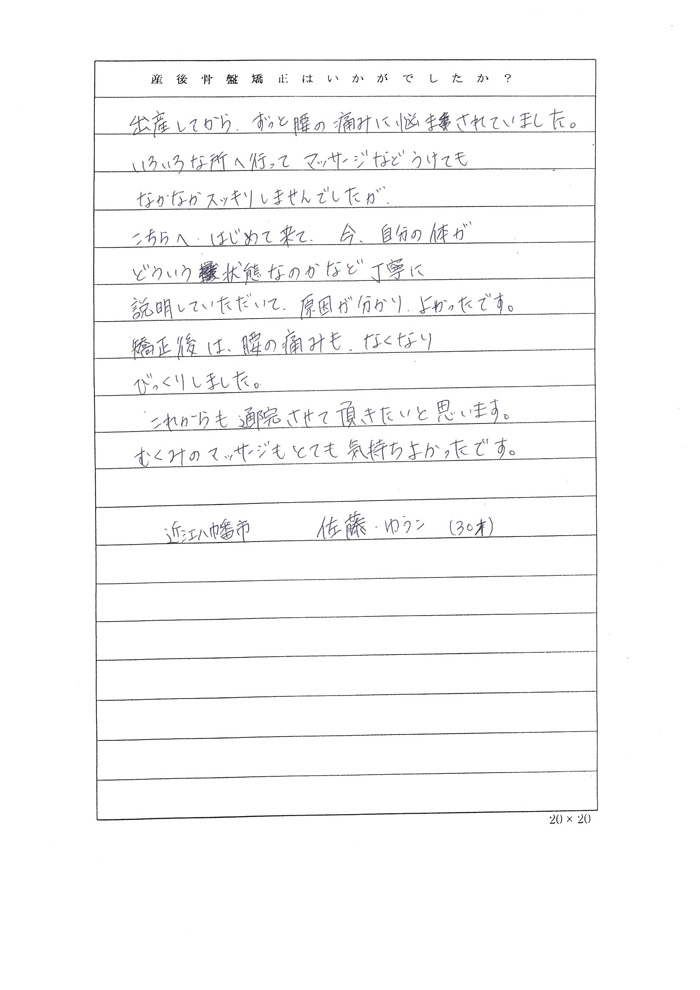 産後骨盤矯正はいかがでしたか？
出産してから、ずっと腰の痛みに悩まされていました。
いろいろな所へ行って マッサージなどうけても
なかなかスッキリしませんでしたが、
こちらへ、はじめて来て、今、自分の体が
どういう状態なのかなど丁寧に
説明していただいて、原因が分かり、よかったです。
矯正後は、腰の痛みも、なくなり
びっくりしました。
これからも通院させて頂きたいと思います。
むくみのマッサージもとても気持ちよかったです。
近江八幡市 佐藤・ゆうこ (30才)
20×20